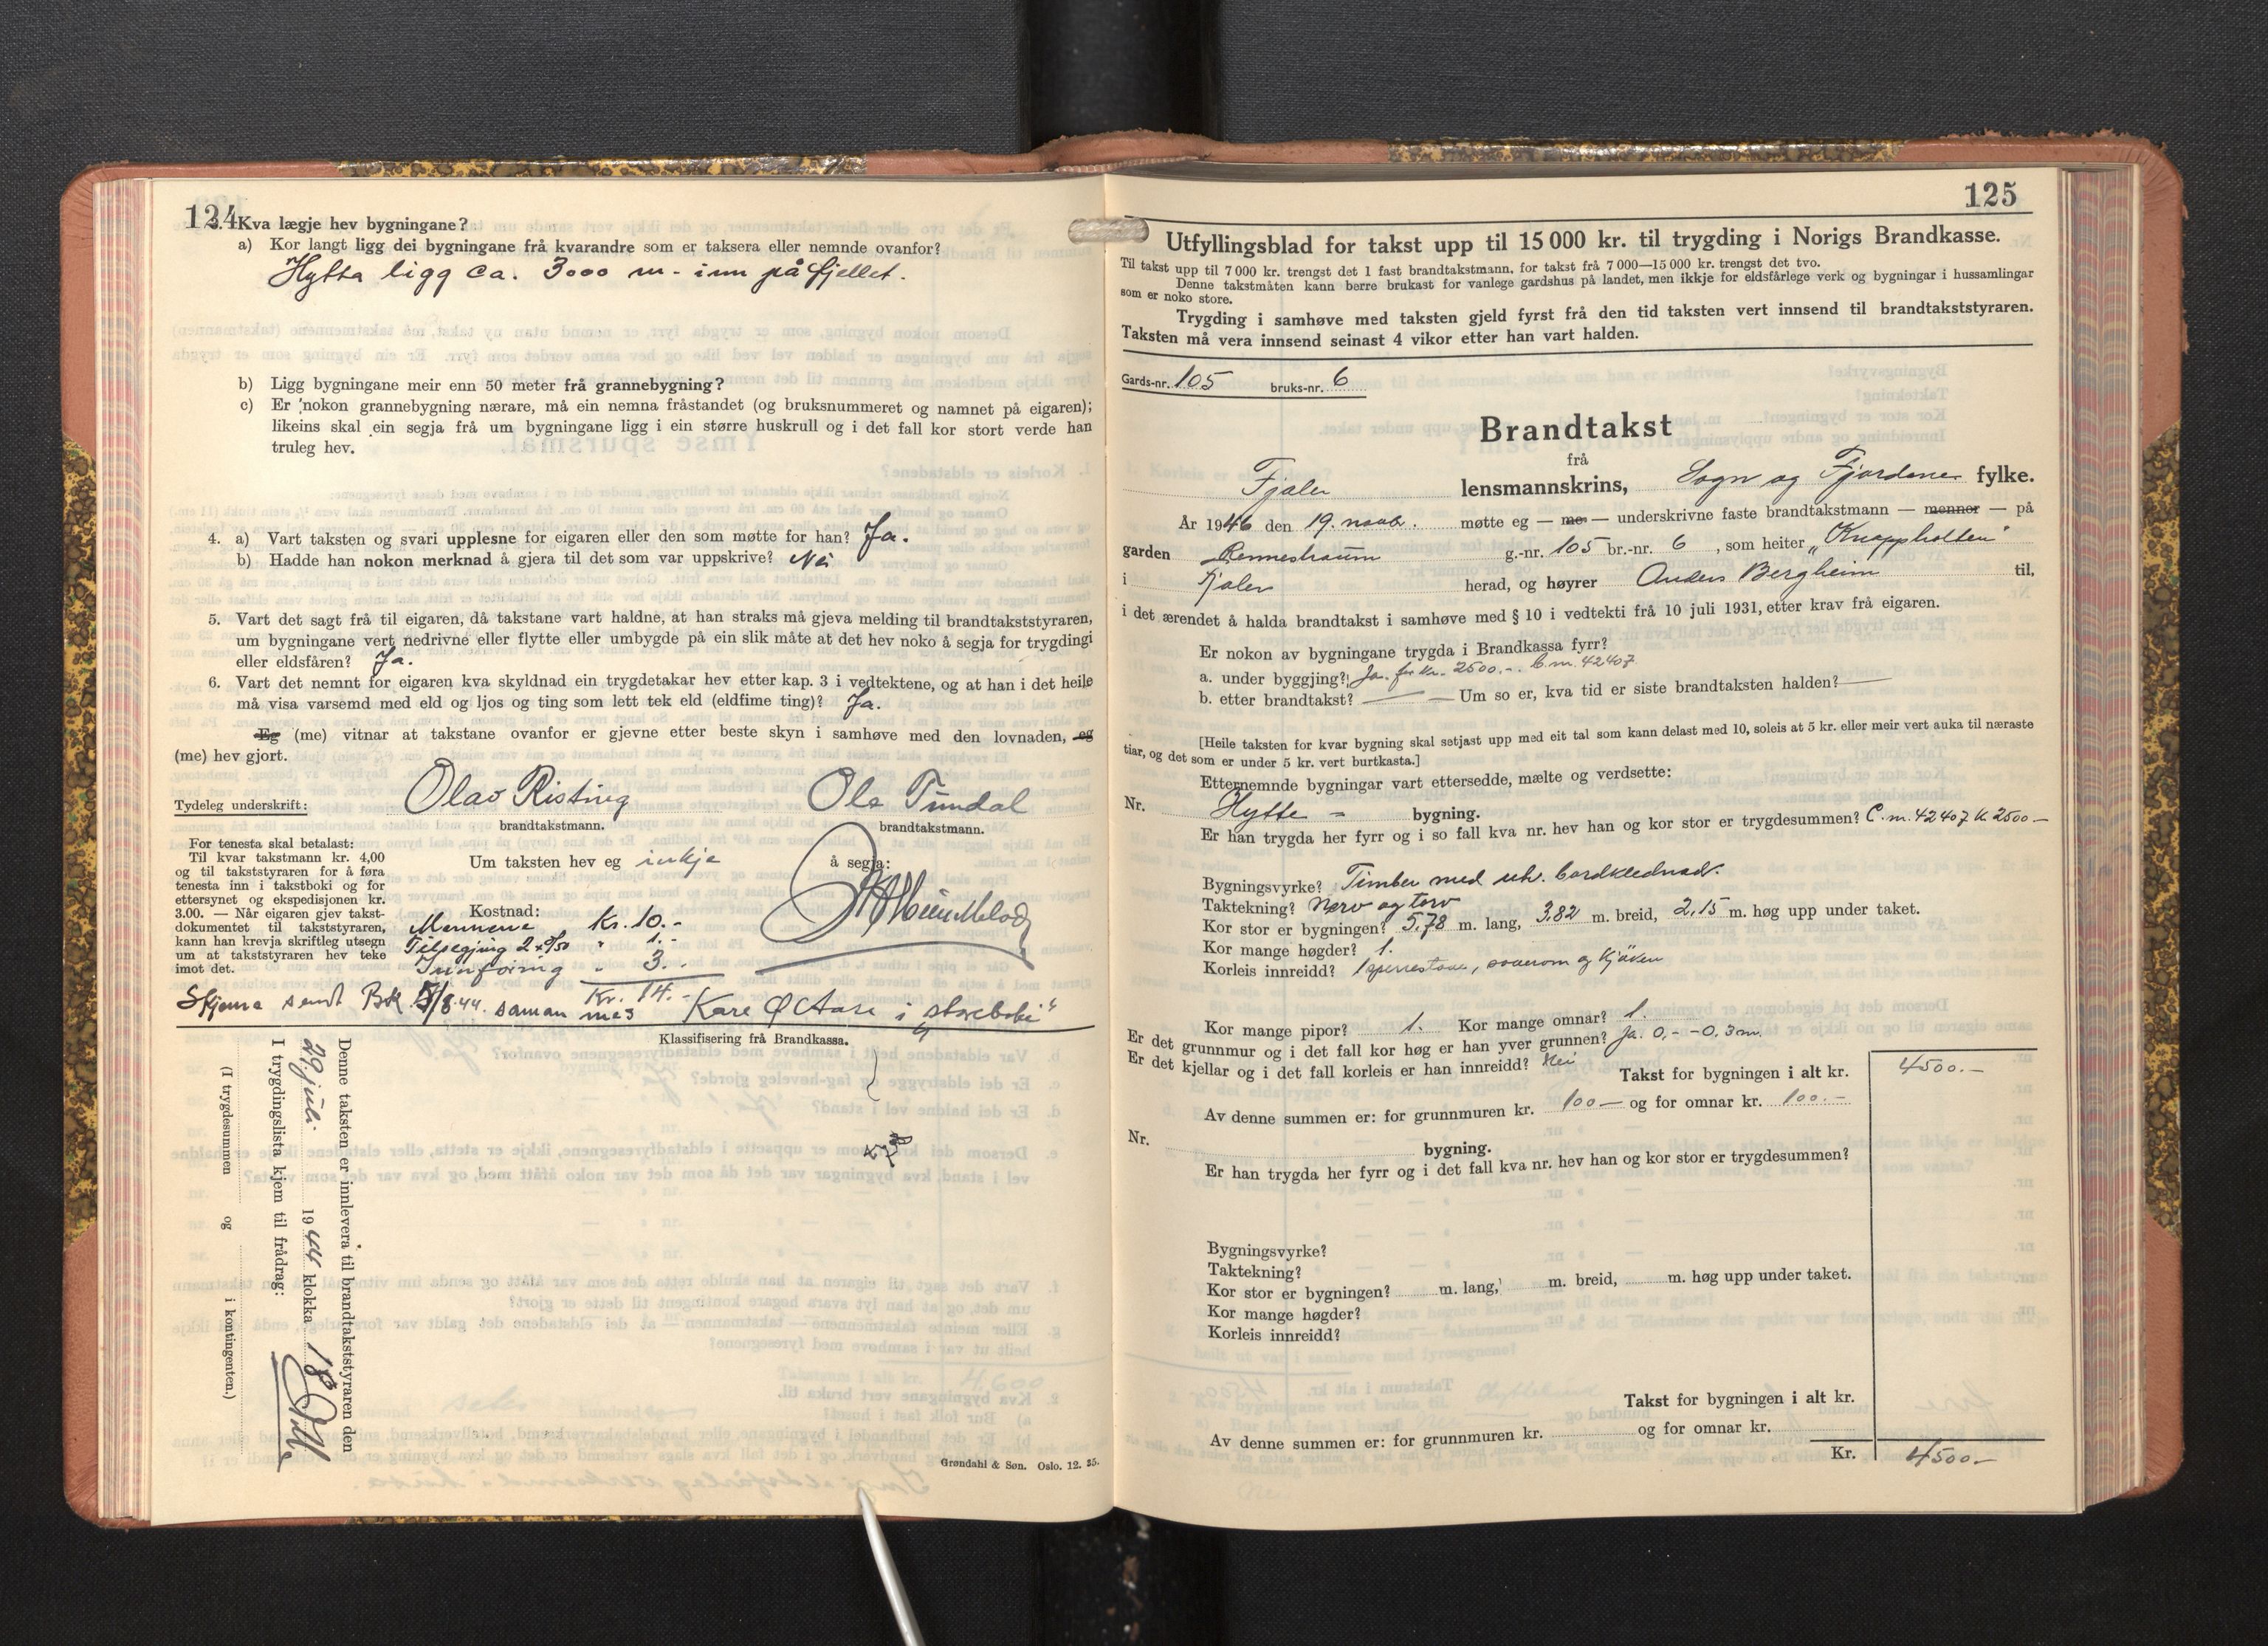 124
3. Kva lægje hev bygningane?
a) Kor langt ligg dei bygningane frå kvarandre som er taksera eller nemnde ovanfor?
Hytta ligg ca. 3000 m - inn på fjellet.
b) Ligg bygningane meir enn 50 meter frå grannebygning?
c) Er nokon grannebygning nærare, må ein nemna fråstandet (og bruksnummeret og namnet på eigaren);
likeins skal ein segja frå um bygningane ligg i ein større huskrull og i det fall kor stort verde han
truleg hev.
4. a) Vart taksten og svari upplesne for eigaren eller den som møtte for han? Ja.
b) Hadde han nokon merknad å gjera til det som var uppskrive? Nei
5. Vart det sagt frå til eigaren, då takstane vart haldne, at han straks må gjeva melding til brandtakststyraren,
um bygningane vert nedrivne eller flytte eller umbygde på ein slik måte at det hev noko å segja for trygdingi
eller eldsfåren? Ja.
6. Vart det nemnt for eigaren kva skyldnad ein trygdetakar hev etter kap. 3 i vedtektene, og at han i det heile
må visa varsemd med eld og ljos og ting som lett tek eld (eldfime ting)? Ja.
Eg (me) vitnar at takstane ovanfor er gjevne etter beste skyn i samhøve med den lovnaden, eg
(me) hev gjort.
Tydeleg underskrift: Olav Risting Ole Tundal
brandtakstmann. brandtakstmann.
For tenesta skal betalast:
Til kvar takstmann kr. 4,00
og til takststyraren for å føra
tenesta inn i takstboki og for
ettersynet og ekspedisjonen kr.
3.00. — Når eigaren gjev takst-
dokumentet til takststyraren,
kann han krevja skriftleg utsegn
um at takststyraren hev teke
imot det.
Um taksten hev eg inkje å segja:
Kostnad:
Mennene Kr. 10.-
Tilsegjing " 1.-
Innføring " 3.-
Kr. 14.-
Skjema sendt Bk. 5/8.44. saman med Kare O Aase i storeboki"
Klassifisering frå Brandkassa.
Denne taksten er innlevera til brandtakststyraren den
29. juli 1944 klokka 18
I trygdingslista kjem til frådrag:
(I trygdesummen og i kontingenten.)
Grøndahl & Søn. Oslo. 12. 35.
125
Utfyllingsblad for takst upp til 15 000 kr. til trygding i Norigs Brandkasse.
Til takst upp til 7 000 kr. trengst det 1 fast brandtakstmann, for takst frå 7 000—15 000 kr. trengst det tvo.
Denne takstmåten kann berre brukast for vanlege gardshus på landet, men ikkje for eldsfårlege verk og bygningar i hussamlingar
som er noko store.
Trygding i samhøve med taksten gjeld fyrst frå den tid taksten vert innsend til brandtakststyraren.
Taksten må vera innsend seinast 4 vikor etter han vart halden.
Gards-nr. 105 bruks-nr. 6
Brandtakst
frå
Fjaler lensmannskrins, Sogn og Fjordane fylke.
År 1946 den 19. novbr. møtte eg — me — underskrivne faste brandtakstmann — menner — på
garden Rennestraum g.-nr. 105 br.-nr. 6, som heiter „Knappholten"
i Fjaler herad, og høyrer Anders Bergheim til,
i det ærendet å halda brandtakst i samhøve med § 10 i vedtekti frå 10 juli 1931, etter krav frå eigaren.
Er nokon av bygningane trygda i Brandkassa fyrr?
a. under byggjing? Ja. for kr. 2500.-. C.m. 42407
b. etter brandtakst? — Um so er, kva tid er siste brandtaksten halden? —
[Heile taksten for kvar bygning skal setjast upp med eit tal som kann delast med 10, soleis at 5 kr. eller meir vert auka til næraste
tiar, og det som er under 5 kr. vert burtkasta.]
Etternemnde bygningar vart ettersedde, mælte og verdsette:
Nr. Hytte - bygning.
Er han trygda her fyrr og i so fall kva nr. hev han og kor stor er trygdesummen? C.m. 42407 k 2500—
Bygningsvyrke? Timber med utv. bordklednad.
Taktekning? Nerv og torv
Kor stor er bygningen? 5,78 m. lang, 3,82 m. breid, 2,15 m. høg upp under taket.
Kor mange høgder? 1.
Korleis innreidd? 1 sperrestove, soverom og kjøken
Kor mange pipor? 1. Kor mange omnar? 1.
Er det grunnmur og i det fall kor høg er han yver grunnen? Ja. 0,- -0,3 m.
Er det kjellar og i det fall korleis er han innreidd? Nei
Takst for bygningen i alt kr. 4500.-
Av denne summen er: for grunnmuren kr. 100— og for omnar kr. 100.-
Nr. bygning.
Er han trygda her fyrr og i det fall kva nr. hev han og kor stor er trygdesummen?
Bygningsvyrke?
Taktekning?
Kor stor er bygningen? m. lang, m. breid, m. høg upp under taket.
Kor mange høgder?
Korleis innreidd?
Takst for bygningen i alt kr.
Av denne summen er: for grunnmuren kr. og for omnar kr.
Kr. 4500.-